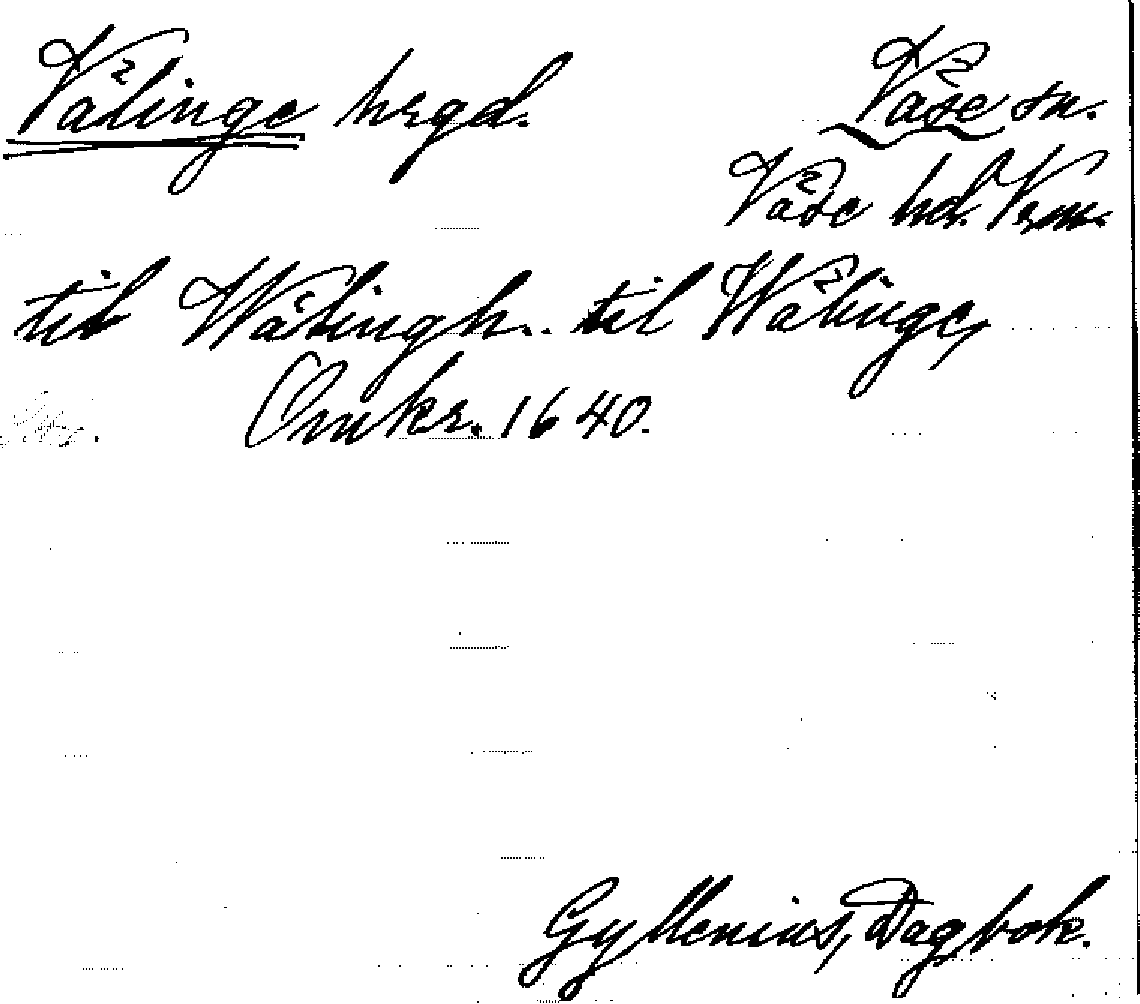 Vålinge hrgd. Väse sn.
Väse hd. Vrm.
till Wålingh.. till Wålinge,
Omkr. 1640.
Gyllenius, Dagbok.